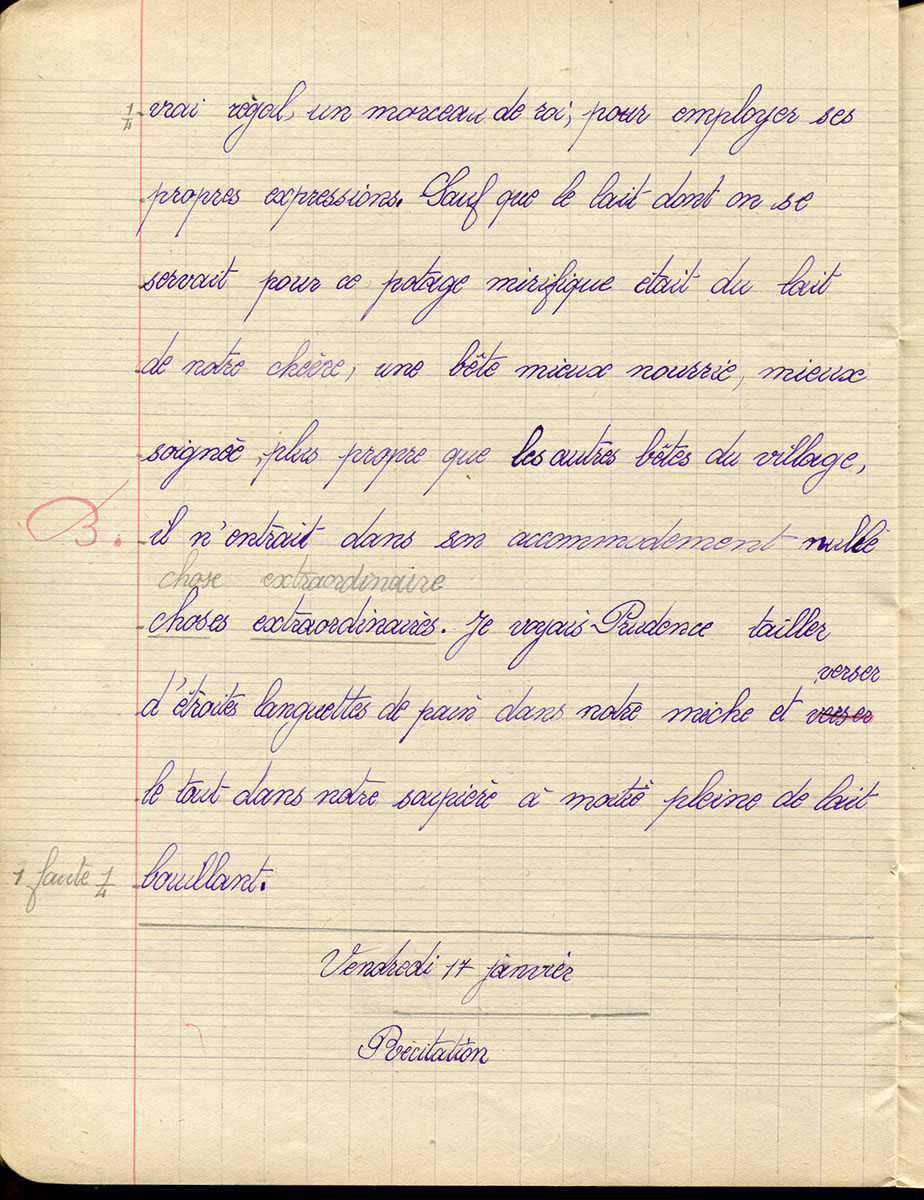 1/4 vrai régal, un morceau de roi, pour employer ses
propres expressions. Sauf que le lait dont on se
servait pour ce potage mirifique était du lait
de notre chèvre, une bête mieux nourrie, mieux
soignée, plus propre que les autres bêtes du village,
3. il n'entrait dans son accommodement nulle
chose extraordinaire
choses extraordinaires. Je voyais Prudence tailler
verser
d'étroites languettes de pain dans notre miche et verser
le tout dans notre soupière à moitié pleine de lait
1 faute 1/4 bouillant.
Vendredi 17 janvier
Récitation